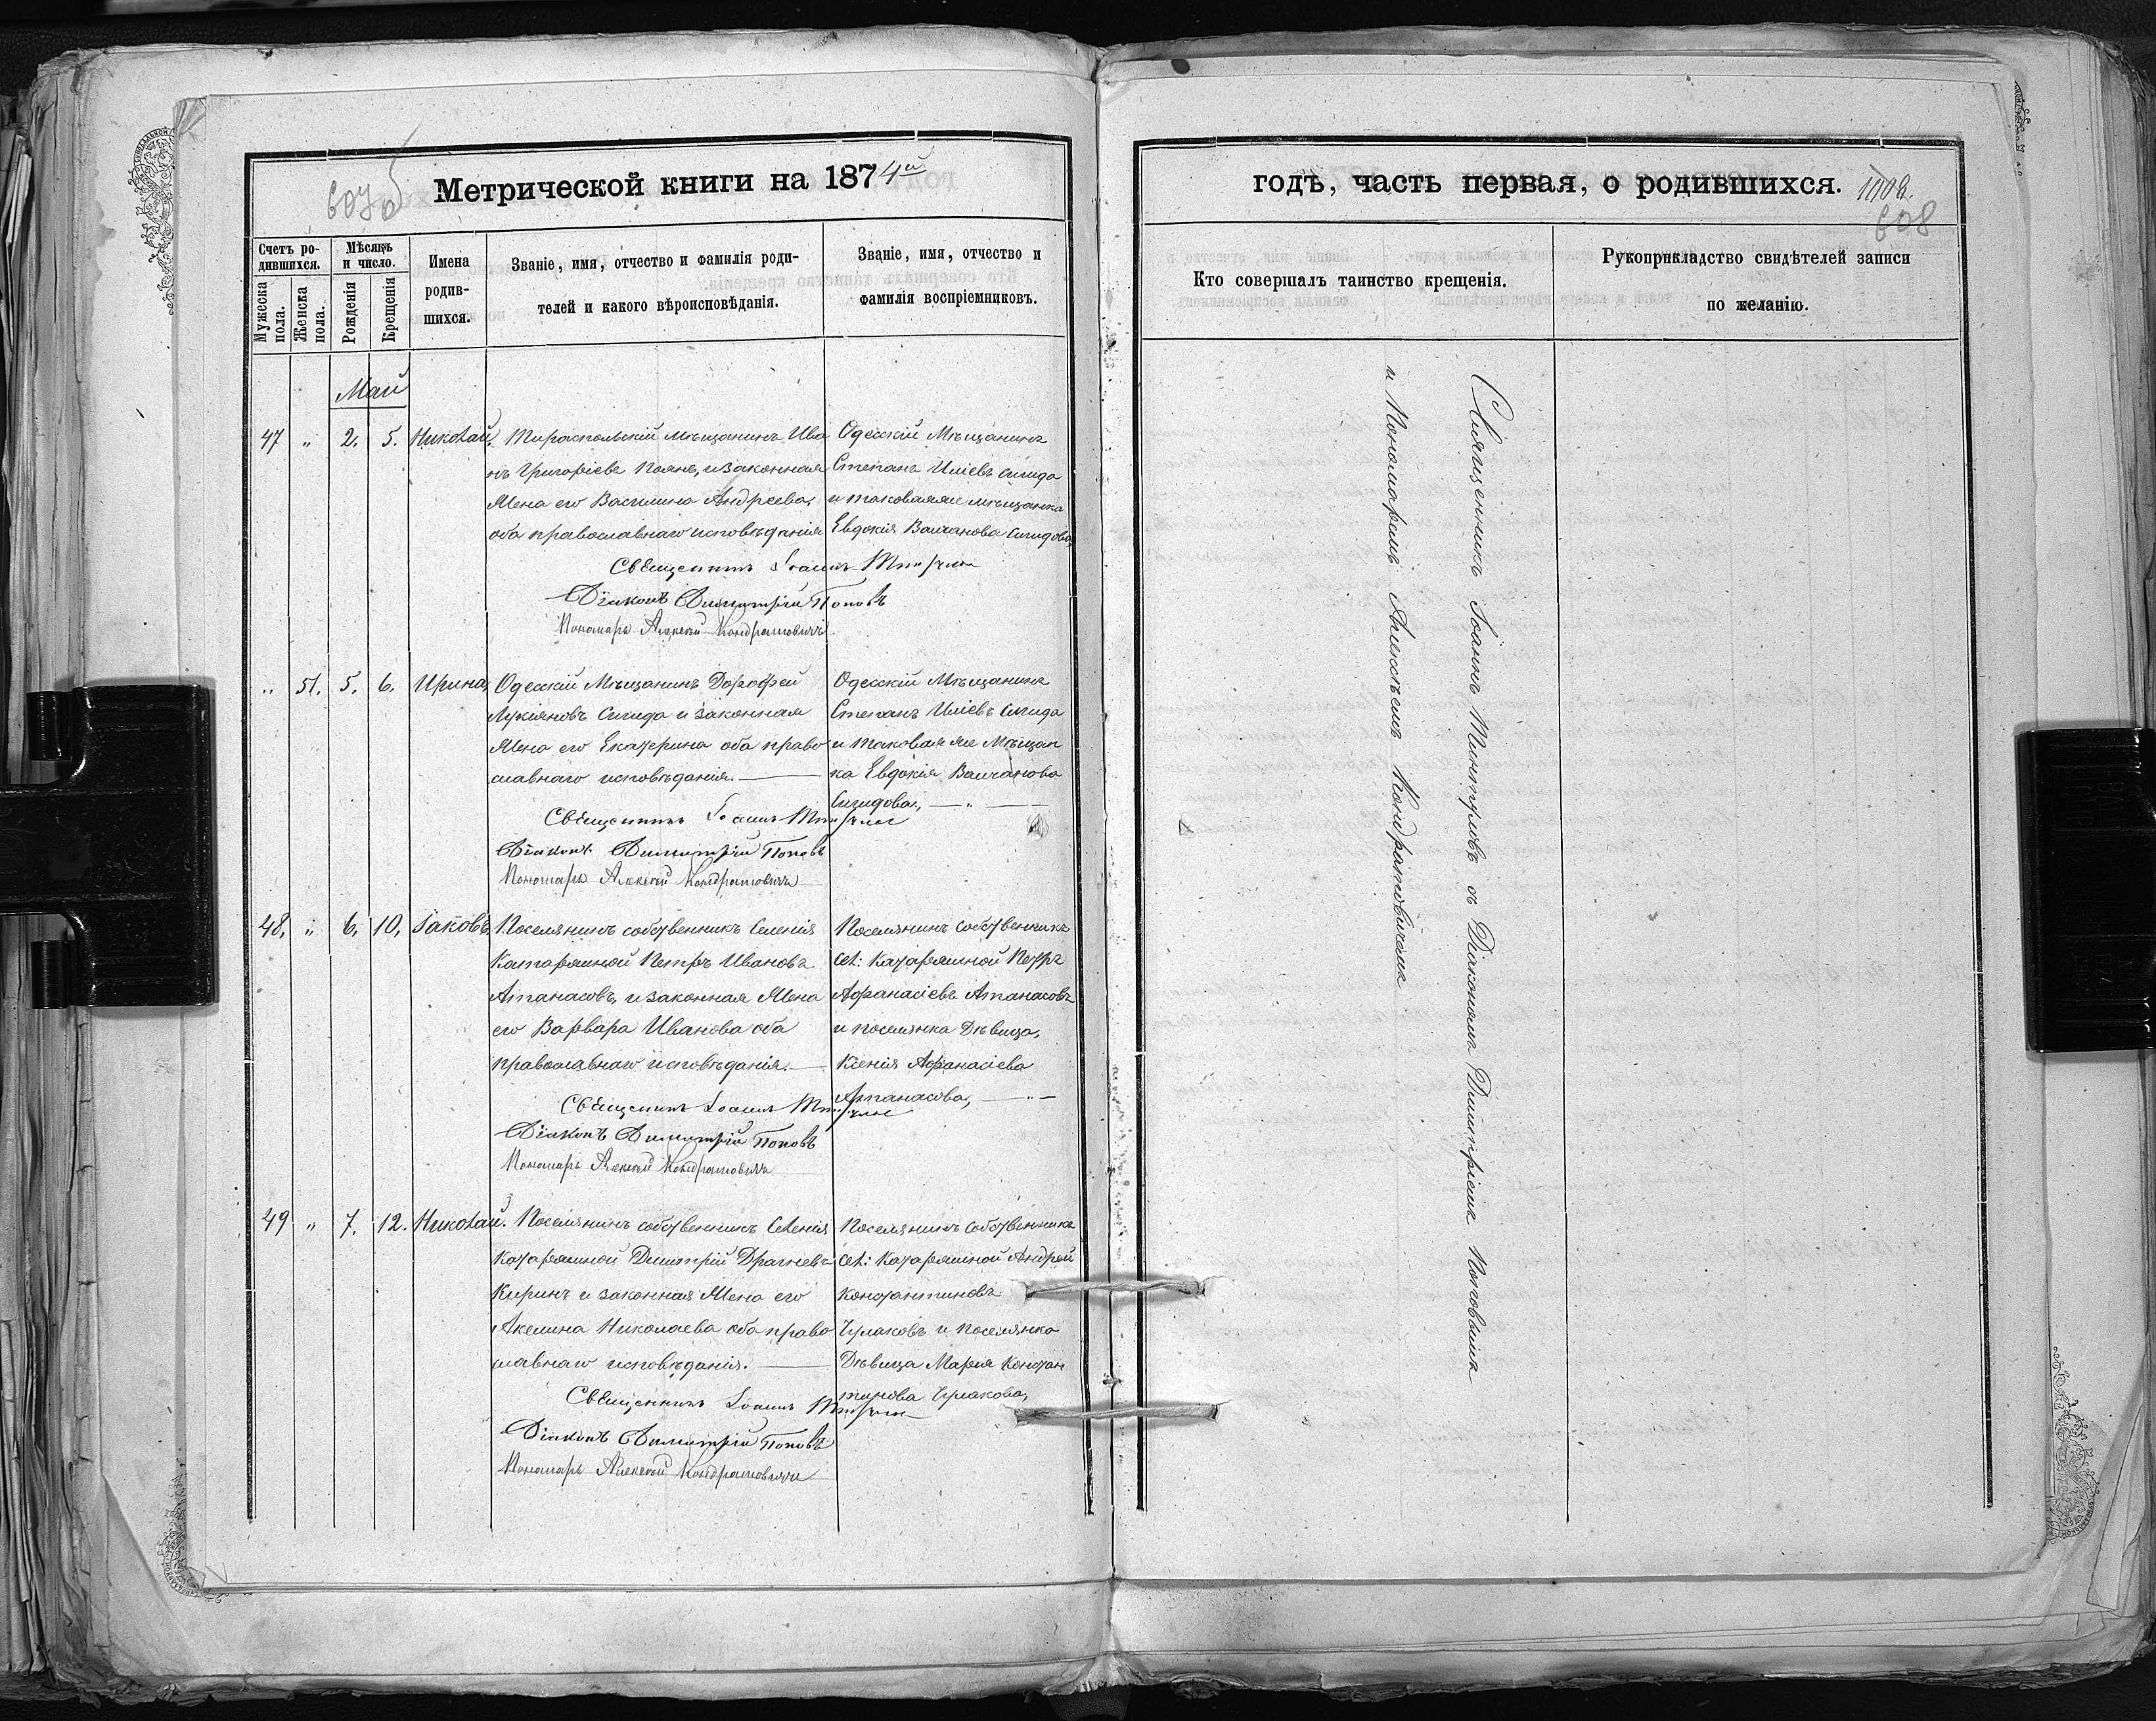 Метрической книги на 1874й
Счетъ ро-
дившихся.
Мужеска пола.
Женска пола.
Мѣсяцъ
и число.
Рожденія
Крещенія
Имена
родив-
шихся.
Званіе, имя, отчество и фамилія роди-
телей и какого вѣроисповѣданія.
Званіе, имя, отчество и
фамилія воспріемниковъ.
Май
47 „ 2. 5. Николай.
Тираспольскій Мѣщанинъ Ива
нъ Григоріевъ Поянъ, и законная
Жена его Василина Андреева,
оба православнаго исповѣданія
Одесскій Мѣщанинъ
Степанъ Иліевъ Сигида
и таковаяже мѣщанка
Евдокія Волчанова Сигидова,
Священникъ Іоаннъ
Діаконъ Димитрій Поповъ
Пономарь Алексѣй Кондратовичъ
„ 51. 5. 6. Ирина,
Одесскій Мѣщанинъ Дорофей
Лукіяновъ Сигида и законная
Жена его Екатерина оба право
славнаго исповѣданія.
Одесскій Мѣщанинъ
Степанъ Иліевъ Сигида
и таковая же Мѣщан
ка Евдокія Волчанова
Сигидова,
Священникъ Іоаннъ
Діаконъ Димитрій Поповъ
Пономарь Алексѣй Кондратовичъ
48, „ 6, 10, Іаковъ,
Поселянинъ собственникъ Селенія
Катаржиной Петръ Ивановъ
Атанасовъ, и законная Жена
его Варвара Иванова оба
православнаго исповѣданія.
Поселянинъ собственникъ
сел: Катаржиной Петръ
Афанасіевъ Атанасовъ
и поселянка Дѣвица,
Ксенія Афанасіева
Атанасова,
Священникъ Іоаннъ
Діаконъ Димитрій Поповъ
Пономарь Алексѣй Кондратовичъ
49 „ 7. 12. Николай.
Поселянинъ собственникъ Селенія
Катаржиной Димитрій Драгневъ
Киринъ и законная Жена его
Акелина Николаева оба право
славнаго исповѣданія.
Поселянинъ собственникъ
сел: Катаржиной Андрей
Константиновъ
Чулаковъ и поселянка
Дѣвица Марія Констан
тинова Чулакова,
Священникъ Іоаннъ
Діаконъ Димитрій Поповъ
Пономарь Алексѣй Кондратовичъ
годъ, часть первая, о родившихся.
608
Кто совершалъ таинство крещенія.
Рукоприкладство свидѣтелей записи
по желанію.
Священникъ Іоаннъ съ Діакономъ Димитріемъ Поповымъ
и Пономаремъ Алексѣемъ Кондратовичемъ